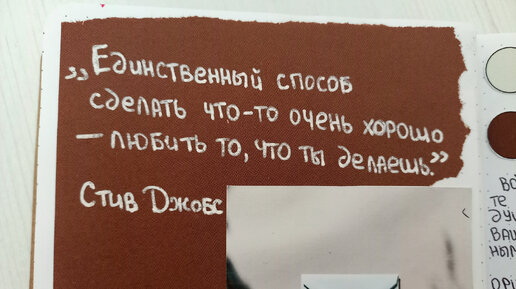 „Единственный способ
сделать что-то очень хорошо
— любить то, что ты делаешь.”
Стив Джобс